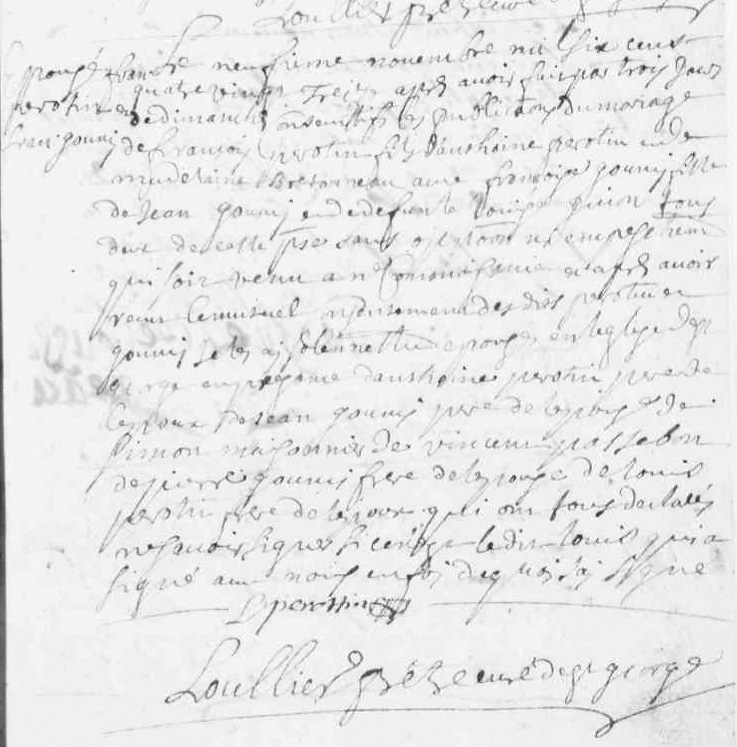 Loullier prêtre curé
pousé
perotin et
fran gouni
Le neufiême nouembre mil six cens
quatre vingt treize apres auoir fait par trois jours
de dimanche consecutifs les publications du mariage
de francois perotin fils d'anthoine perotin et de
madelaine Bretonneau auec francoise gouni fille
de Jean gouni et de defunte Louise guion tous
deux de cette psse sans opistoon ni empeschem
qui soit venu a ne Connoissance et apres auoir
receu le mutuel consentement des dits perotin et
gouni je les ai solennellem epousés en leglise de st
george en presence danthoine perotin pere de
lepoux de Jean gouni pere de lepouse de
simon maisonnier de vincent passebon
de pierre gouni frere de lepouse de louis
perotin frere de lepoux qui ont tous declaré
ne scauoir signer si ce n'est ledit louis qui a
signé auec nous en foi de quoi j'ai signé
L perotin
Loullier prêtre curé de st george